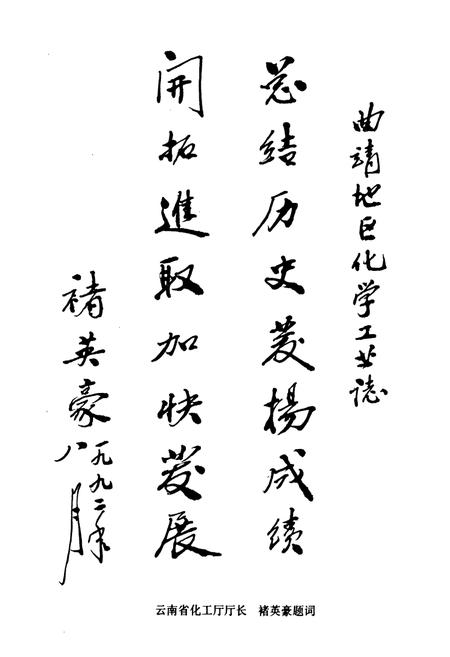 曲靖地区化学工业誌
总结历史发揚成绩
開拓進取加快发展
褚英豪
一九九二年
八月
云南省化工厅厅长 褚英豪题词